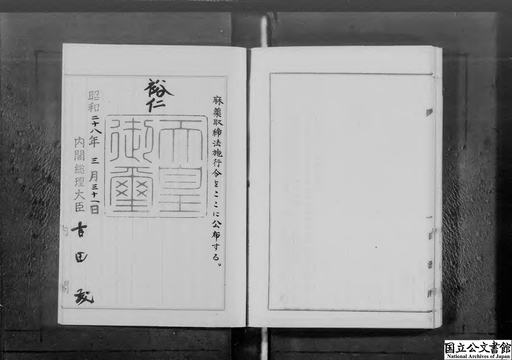 麻薬取締法施行令をここに公布する。
裕仁
天皇御璽
昭和二十八年三月三十一日
内閣総理大臣 吉田茂
国立公文書館
National Archives of Japan